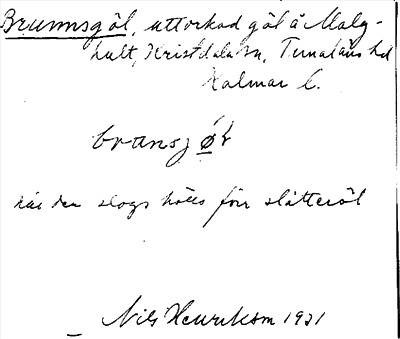 Brunnsgöl, uttorkad göl å Målg-
hult, Kristdala sn, Tunaläns hd
Kalmar l.
bransjøl
när den slogs hölls förr slåtteröl
Nils Henrikson 1921